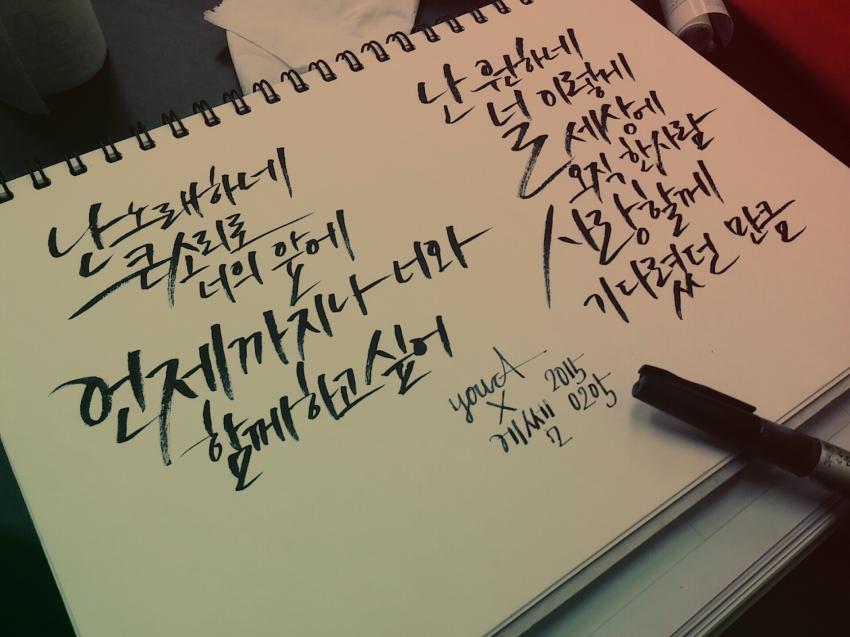 난 노래하네
큰 소리로
너의 앞에
언제까지나 너와
함께하고 싶어
난 원하네
널 이렇게
세상에
오직 한사람
사랑할게
기다렸던 만큼
your A
X
에쎌
2015
0205